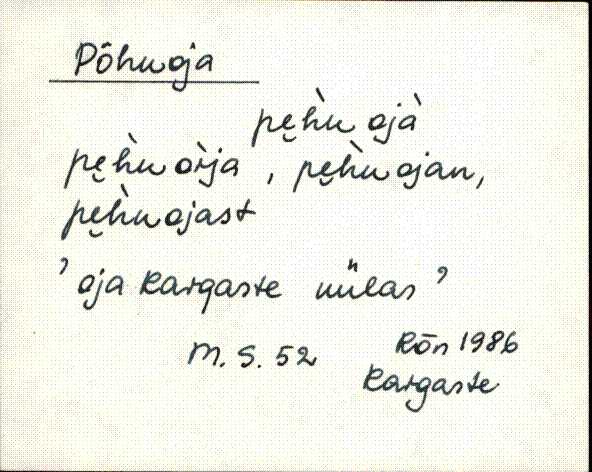 Põhuoja
pe̮h̀u ojà
pe̮h̀u oìja, pe̮h̀u ojan,
pe̮h̀u ojast
’oja Kargaste külas’
M. S. 52 Rõn 1986
Kargaste